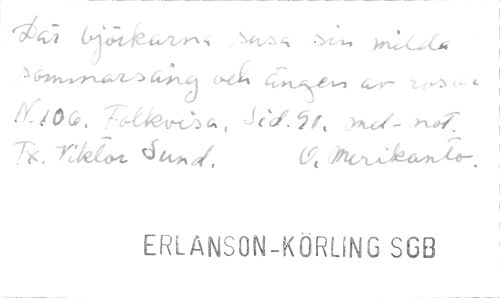 Där björkarna susa sin milda
sommarsång och ängen av rosor
N.106. Folkvisa. Sid. 90. mel-not.
Tx. Viktor Sund. O. Merikanto.
ERLANSON-KÖRLING SGB